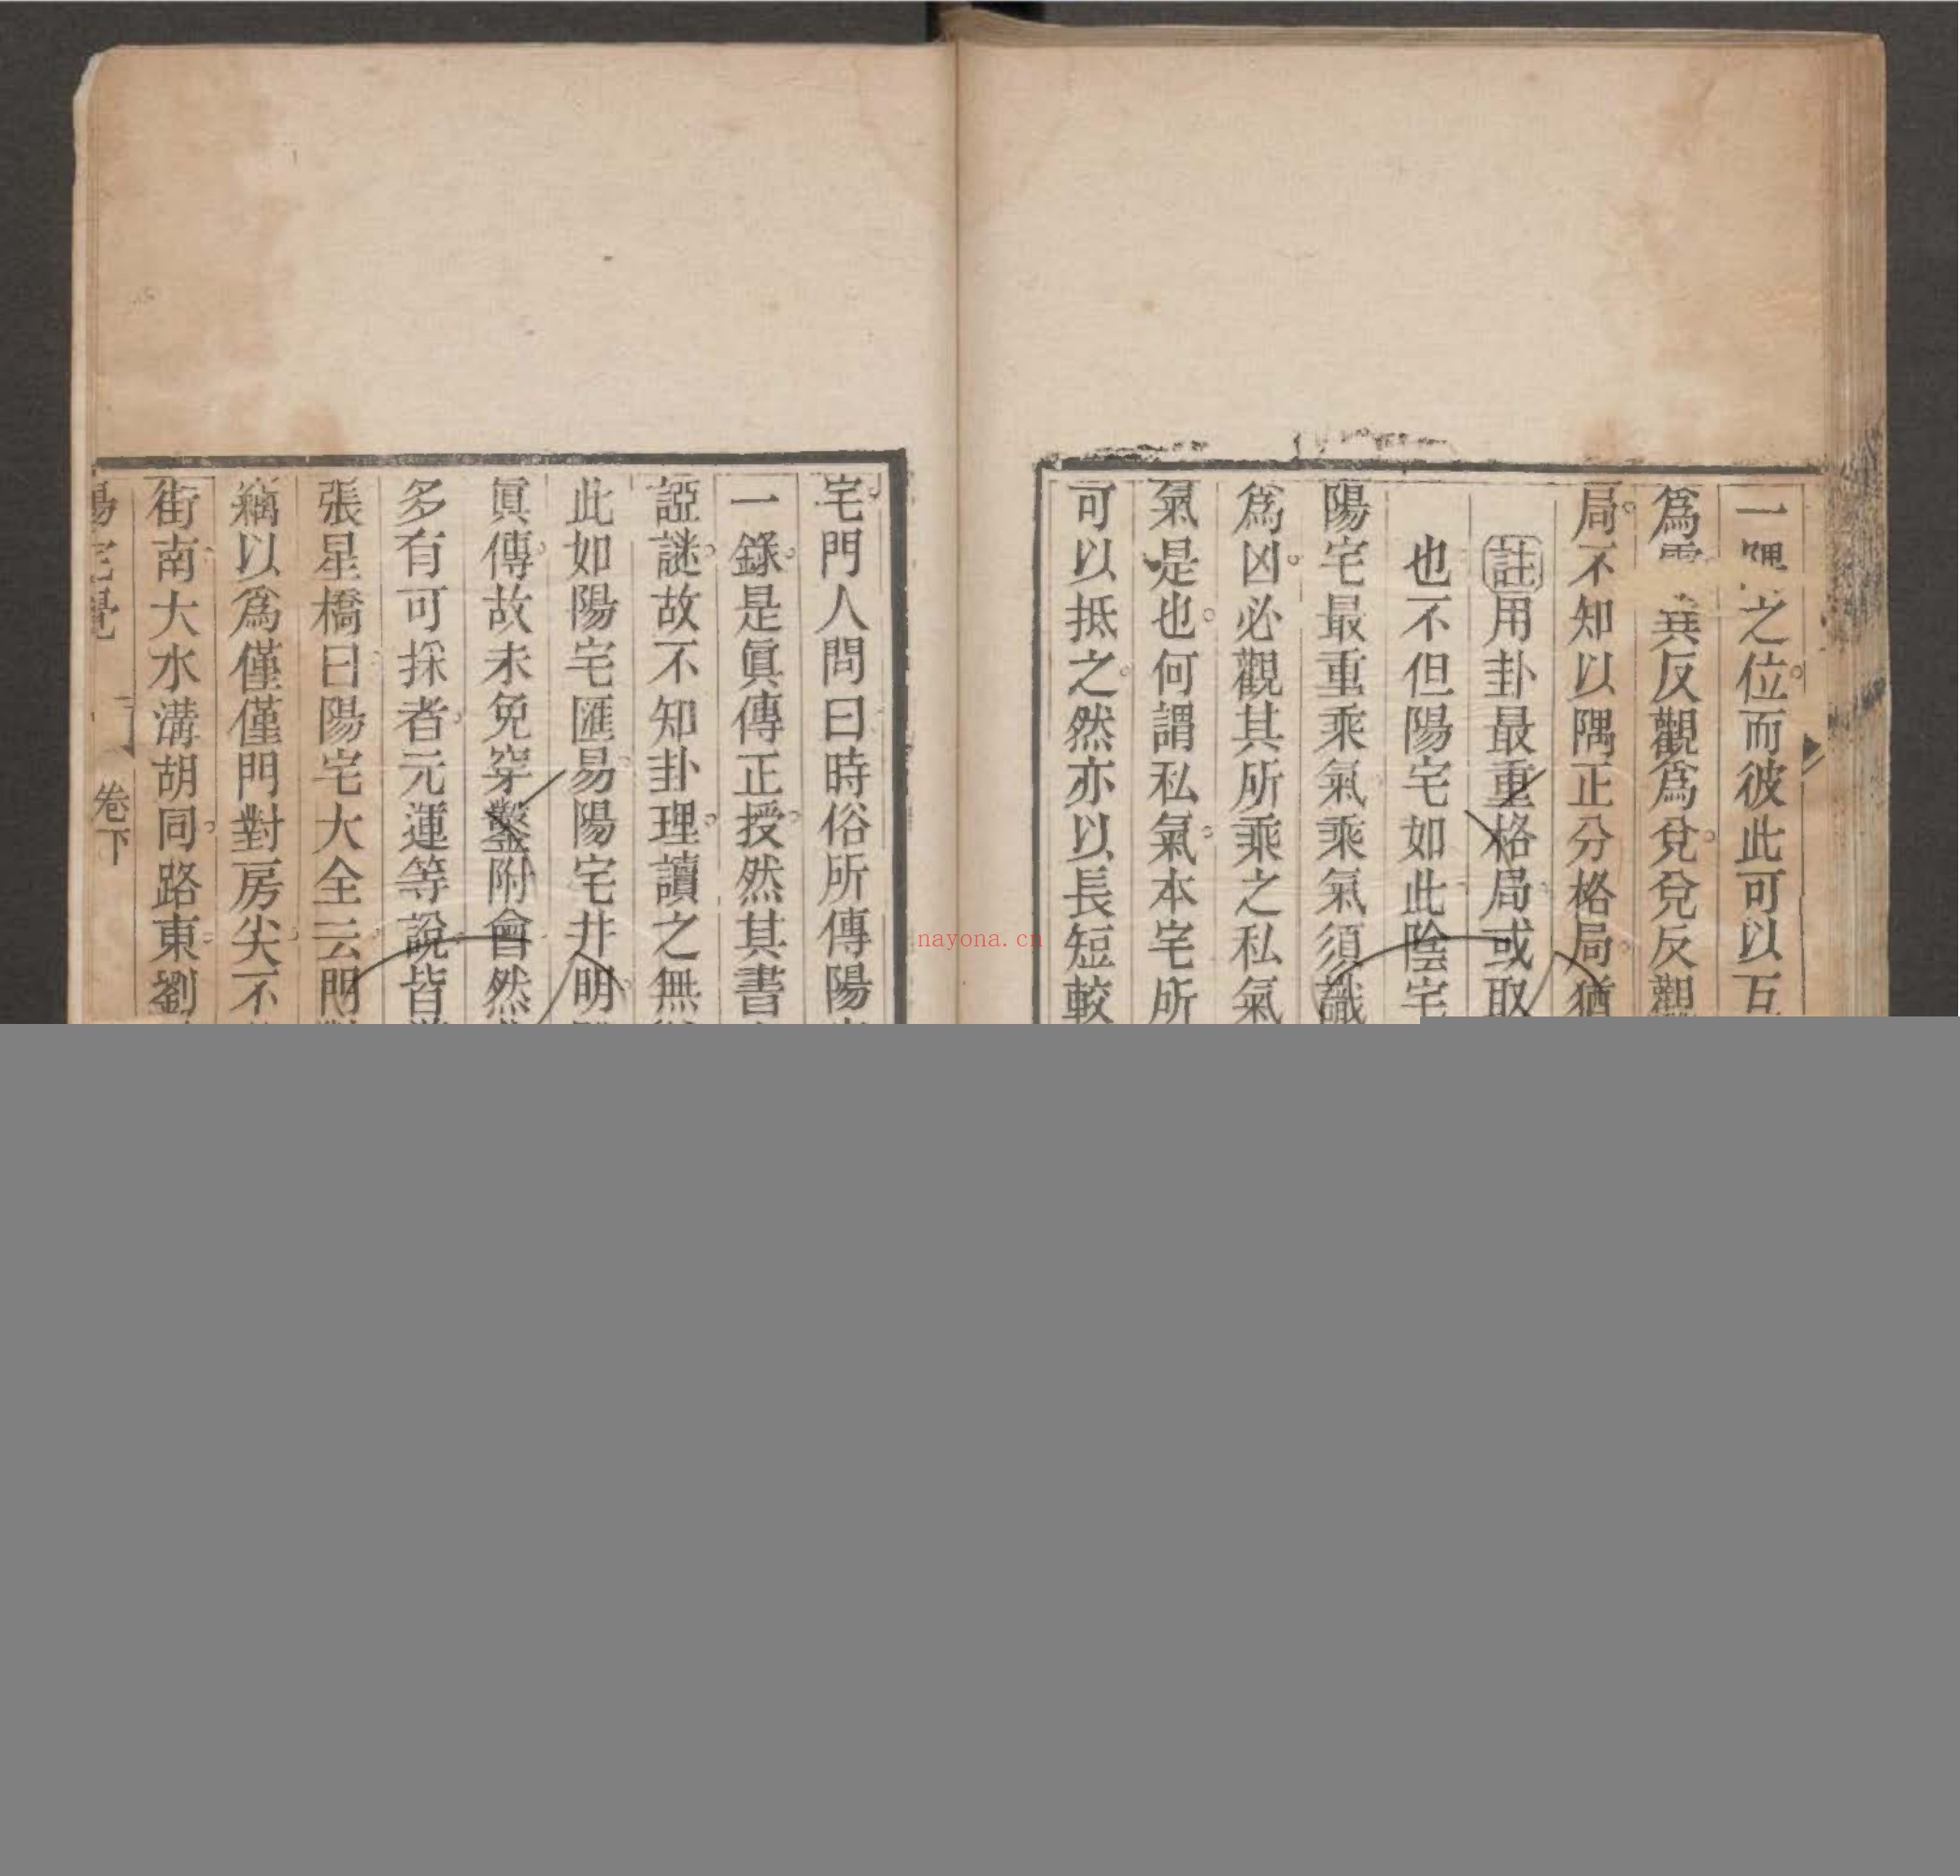 一
之位而彼此可以互
爲
巽反觀爲兌兌反觀
局不知以隅正分格局猶
註用卦最重格局或取
也不但陽宅如此陰宅
陽宅最重乘氣乘氣須識
爲凶必觀其所乘之私氣
氣是也何謂私氣本宅所
可以抵之然亦以長短較
宅門人問曰時俗所傳陽
一錄是眞傳正授然其書
誣謎故不知卦理讀之無
此如陽宅匯易陽宅井明
眞傳故未免穿鑿附會然
多有可採者元運等說皆
張星橋曰陽宅大全云門
竊以爲僅僅門對房尖不
街南大水溝胡同路東劉
陽宅覺
卷下
nayona.cn